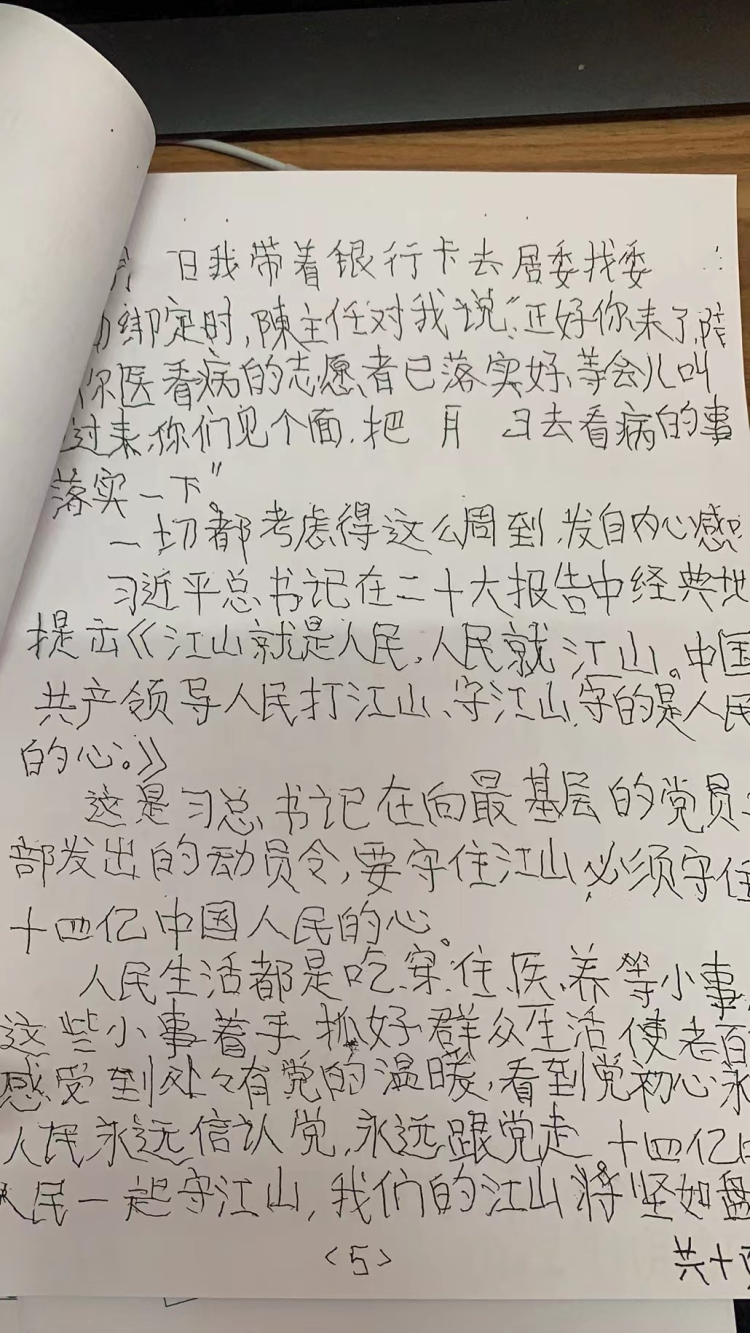 日我带着银行卡去居委找委
绑定时,陳主任对我说“正好你来了,陪
你医看病的志愿者已落实好、等会儿叫
过来,你们见个面,把 月 日去看病的事
落实一下”。
一切都考虑得这么周到,发自内心感
习近平总书记在二十大报告中经典地
提出《江山就是人民,人民就江山。中国
共产领导人民打江山、守江山,守的是人民
的心。》
这是习总书记在向最基层的党员
部发出的动员令,要守住江山必须守住
十四亿中国人民的心。
人民生活都是吃、穿、住、医、养等小事,
这些小事着手抓好群众生活使老百
感受到处々有党的温暖,看到党初心永
人民永远信认党,永远跟党走 十四亿
人民一起守江山,我们的江山将坚如盘
<5>
共十页